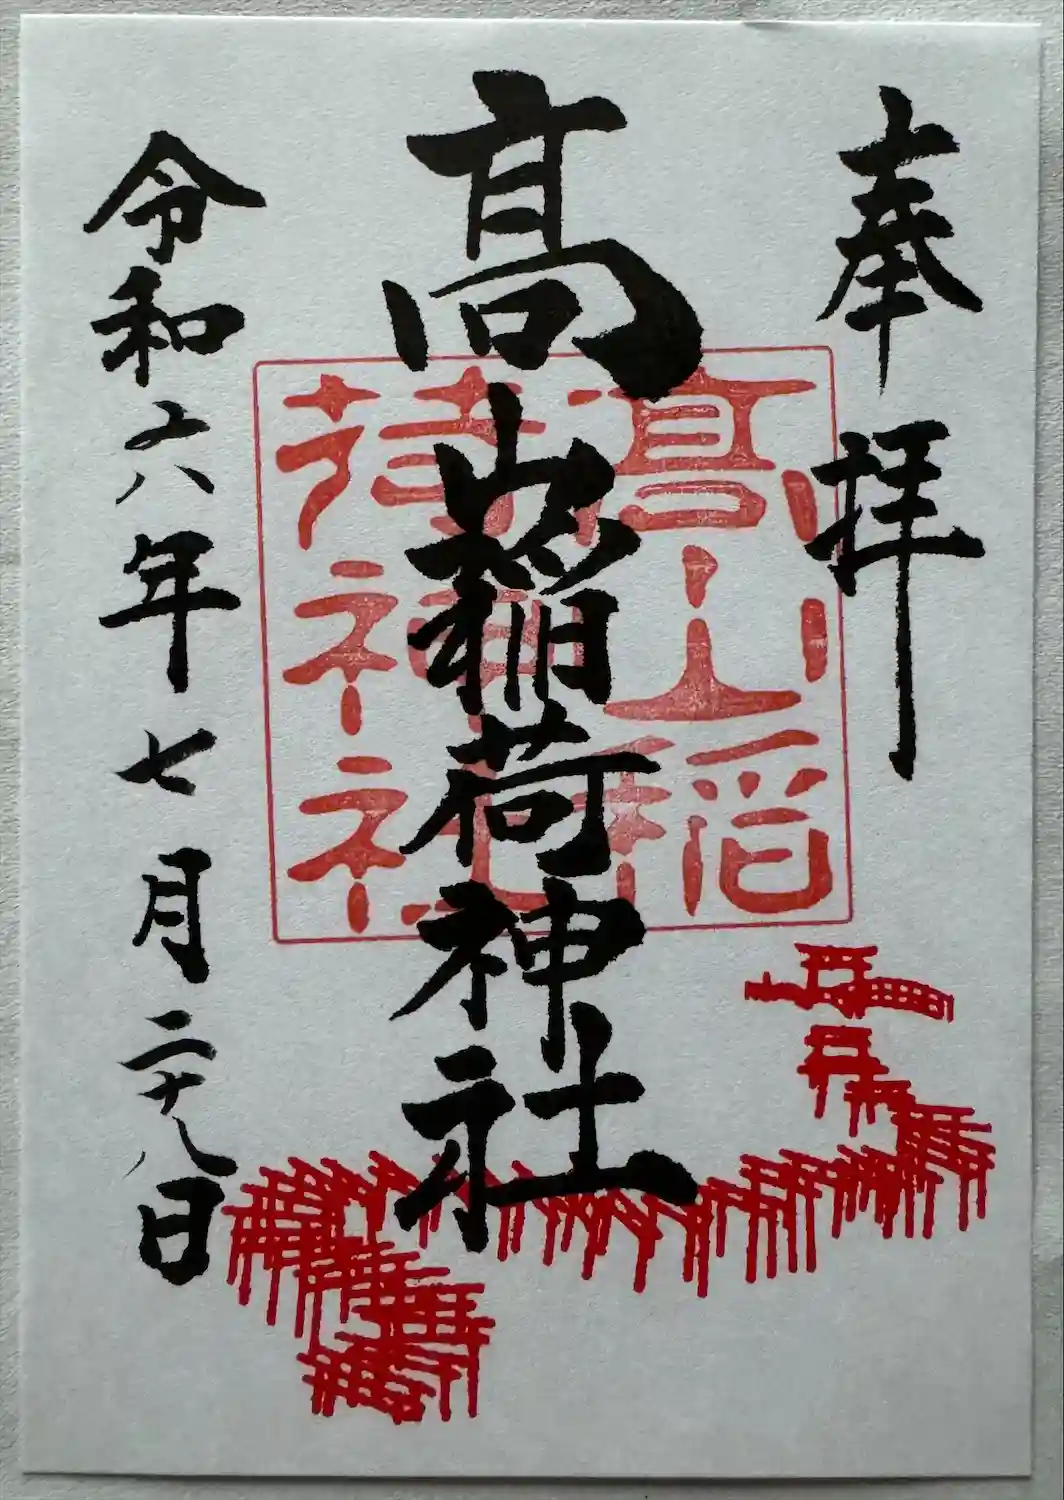 奉拝
高山稲荷神社
高山稲
荷神社
令和六年七月二十八日